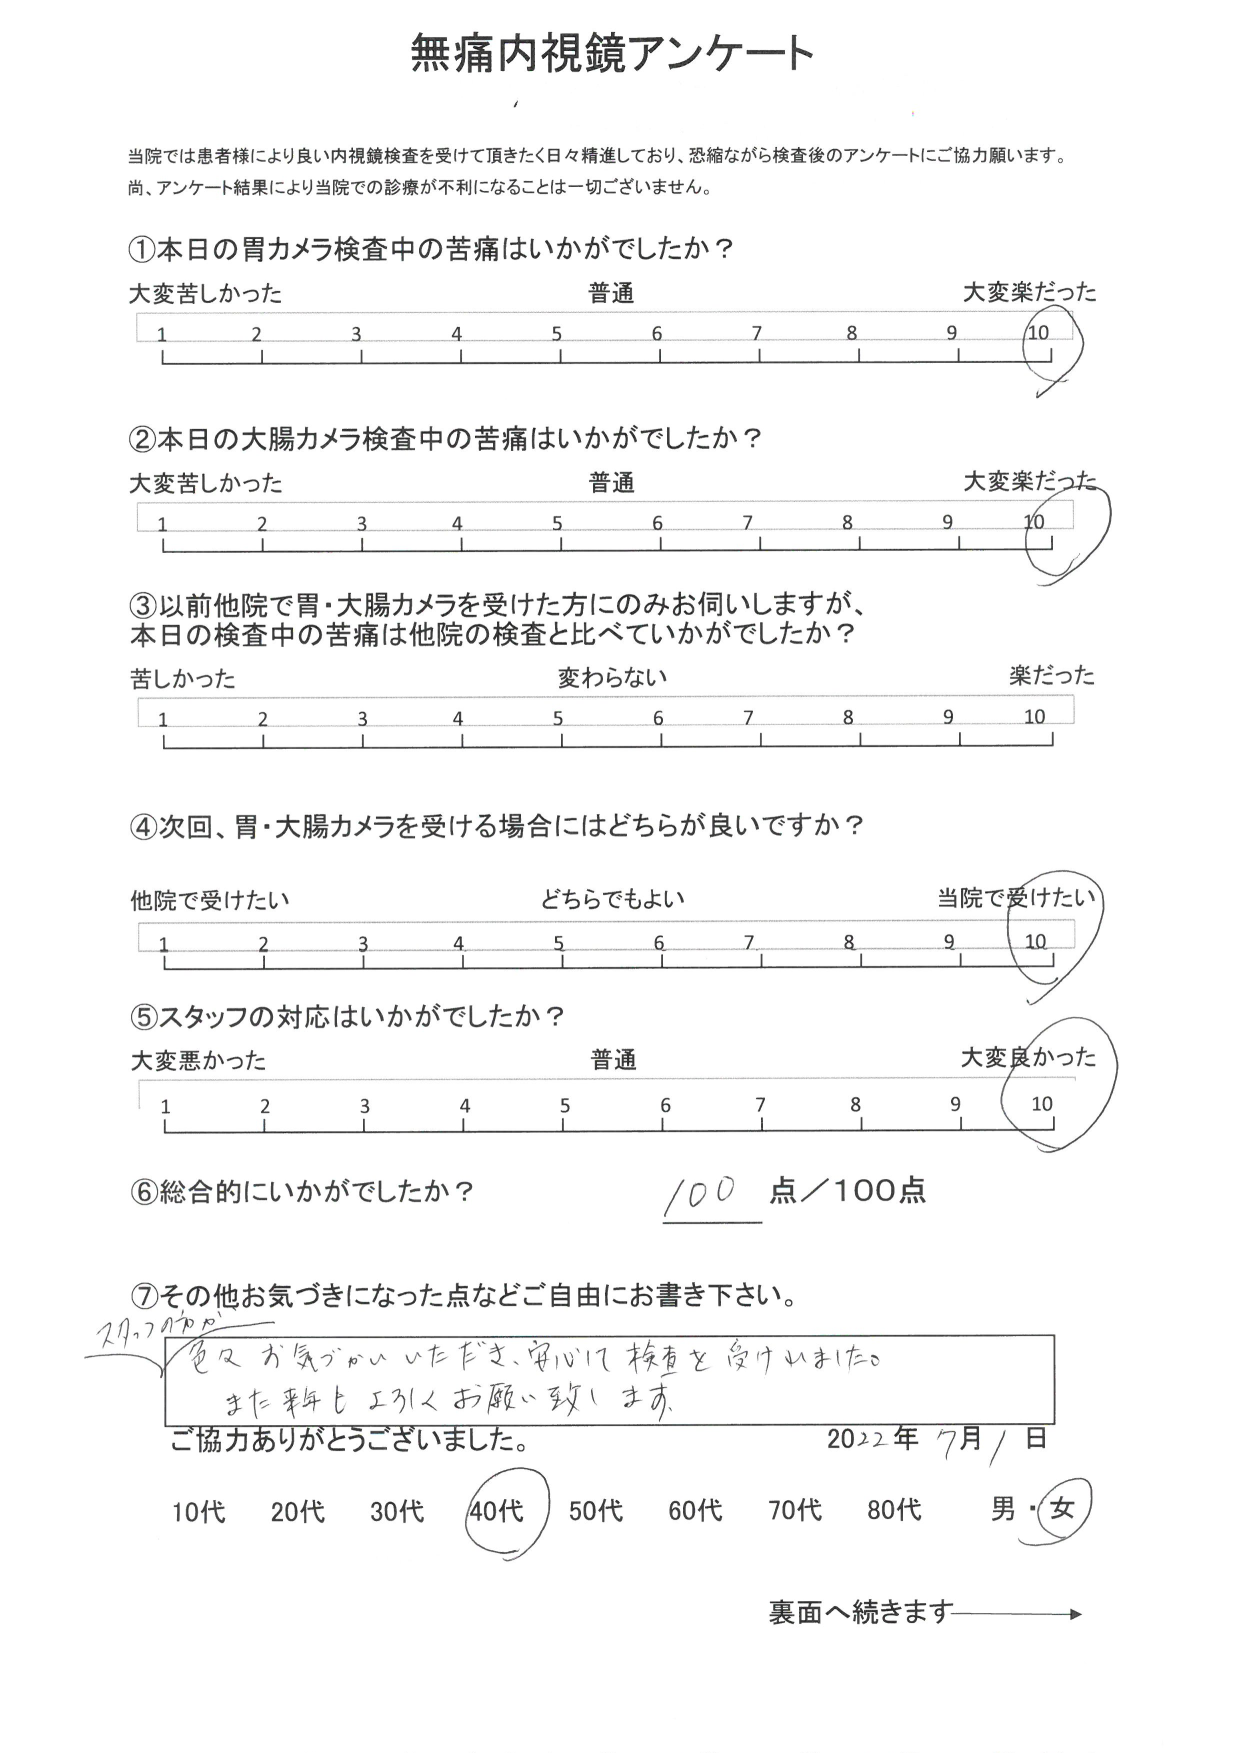 無痛内視鏡アンケート
当院では患者様により良い内視鏡検査を受けて頂きたく日々精進しており、恐縮ながら検査後のアンケートにご協力願います。
尚、アンケート結果により当院での診療が不利になることは一切ございません。
①本日の胃カメラ検査中の苦痛はいかがでしたか？
大変苦しかった 普通 大変楽だった
1 2 3 4 5 6 7 8 9 10
②本日の大腸カメラ検査中の苦痛はいかがでしたか？
大変苦しかった 普通 大変楽だった
1 2 3 4 5 6 7 8 9 10
③以前他院で胃・大腸カメラを受けた方にのみお伺いしますが、
本日の検査中の苦痛は他院の検査と比べていかがでしたか？
苦しかった 変わらない 楽だった
1 2 3 4 5 6 7 8 9 10
④次回、胃・大腸カメラを受ける場合にはどちらが良いですか？
他院で受けたい どちらでもよい 当院で受けたい
1 2 3 4 5 6 7 8 9 10
⑤スタッフの対応はいかがでしたか？
大変悪かった 普通 大変良かった
1 2 3 4 5 6 7 8 9 10
⑥総合的にいかがでしたか？ 100 点／100点
⑦その他お気づきになった点などご自由にお書き下さい。
スタッフの方が
色々お気づかいいただき、安心して検査を受けれました。
また来年もよろしくお願い致します。
ご協力ありがとうございました。 2022年 7月 1日
10代 20代 30代 40代 50代 60代 70代 80代 男・女
裏面へ続きます→